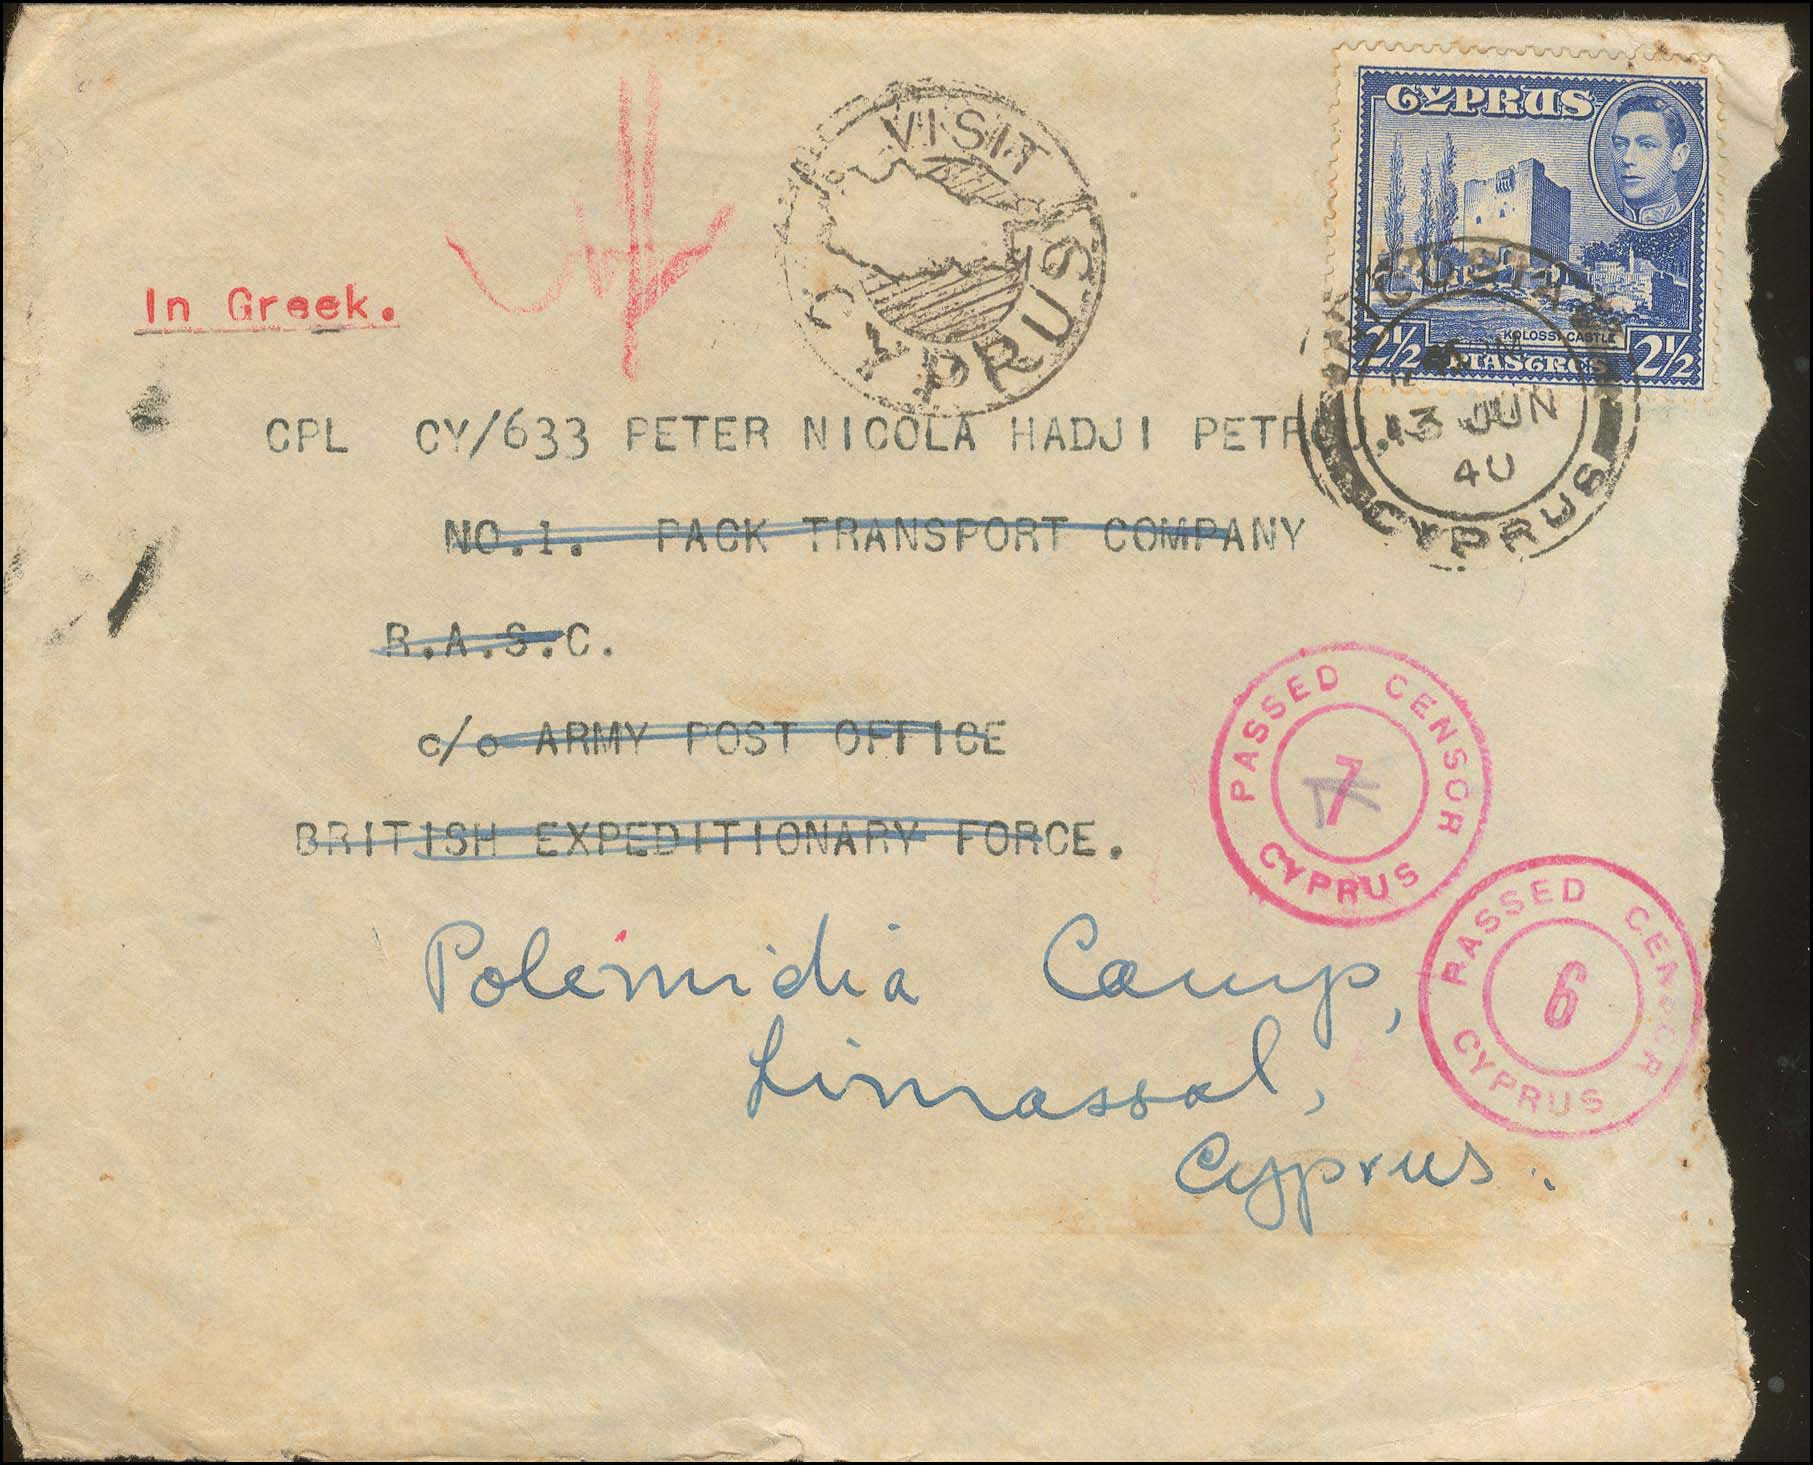 VISIT
CYPRUS
CYPRUS
KOLOSSI CASTLE
2½ PIASTRES 2½
NICOSIA
13 JUN
40
CYPRUS
In Greek.
CPL CY/633 PETER NICOLA HADJI PETR
NO.1. PACK TRANSPORT COMPANY
R.A.S.C.
c/o ARMY POST OFFICE
BRITISH EXPEDITIONARY FORCE.
PASSED CENSOR
7
CYPRUS
PASSED CENSOR
6
CYPRUS
Polemidia Camp,
Limassol,
Cyprus.